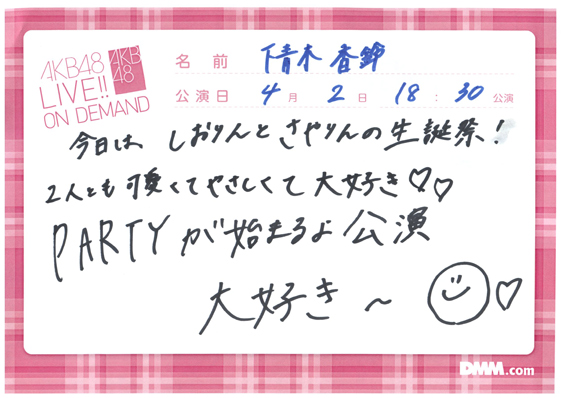 AKB48
LIVE!!
ON DEMAND
AKB
48
名前 下青木 香鈴
公演日 4月 2日 18:30公演
今日は しおりんと さやりんの生誕祭!
2人とも可愛くてやさしくて大好き♡♡
PARTYが始まるよ公演
大好き〜
DMM.com